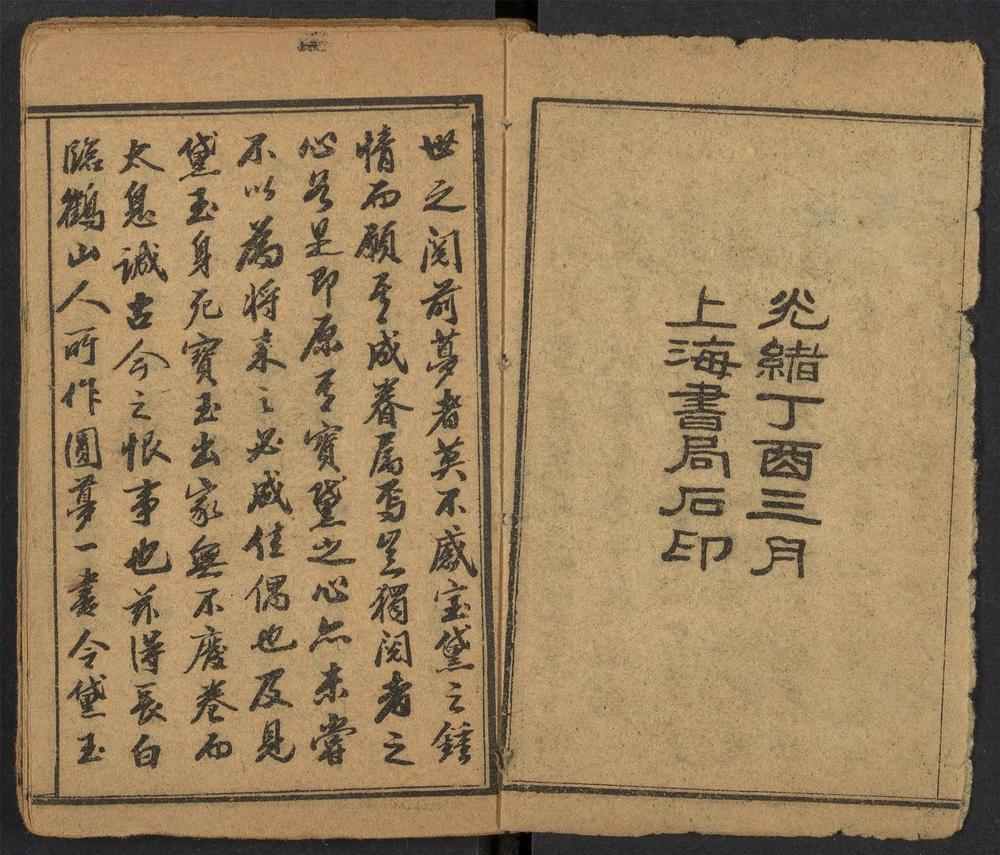 光緒丁酉三月
上海書局石印
世之閱前夢者莫不感宝黛之鍾
情而願其成眷属焉豈獨閱者之
心若是即原書寶黛之心亦未嘗
不以為将来之必成佳偶也及見
黛玉身死寶玉出家無不廢卷而
太息誠古今之恨事也茲得長白
臨鶴山人所作圓夢一書令黛玉